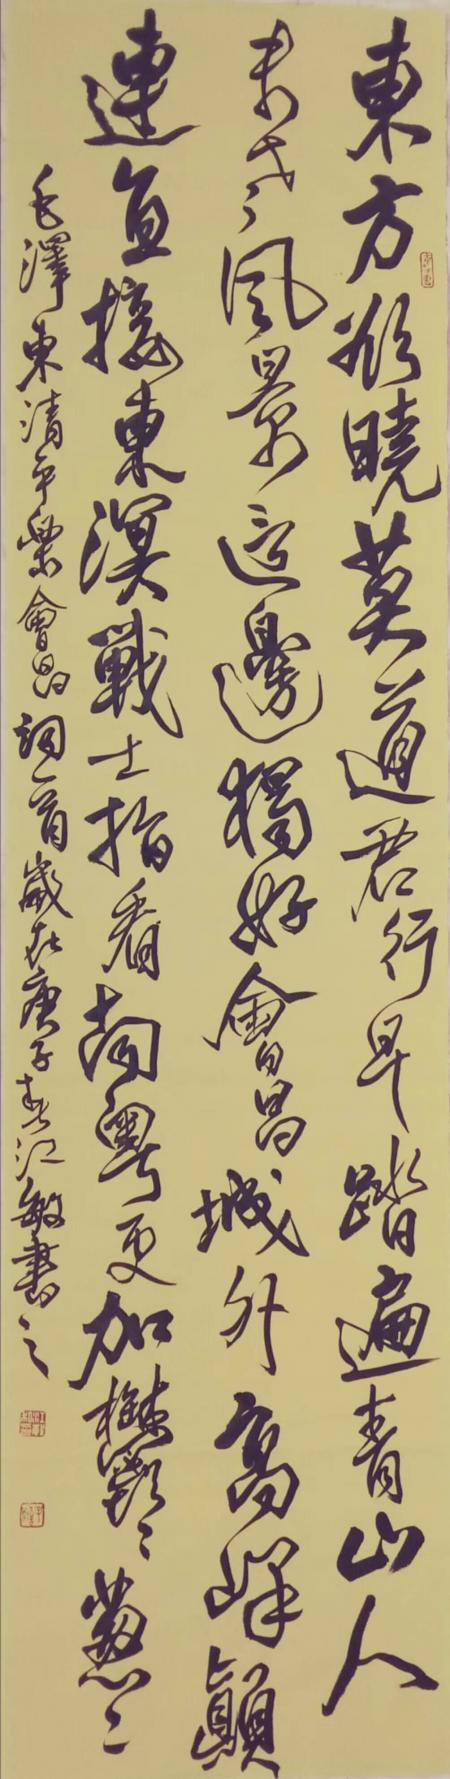 東方欲曉莫道君行早踏遍青山人
未老風景這邊獨好會昌城外高峰顛
連直接東溟戰士指看南粵更加鬱〻蔥〻
毛澤東清平樂會昌詞一首歲在庚子春江敏書之